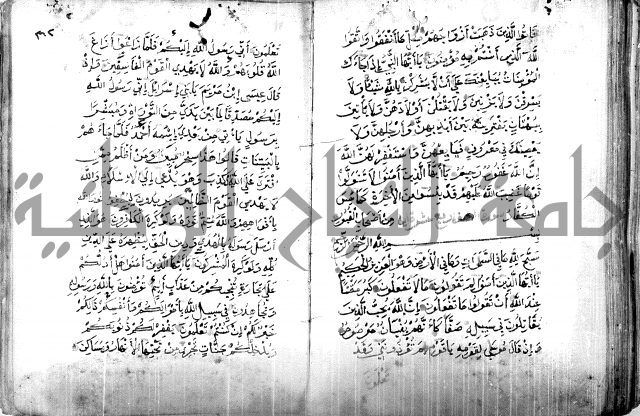 فاتوا الذين ذهبت أزواجهم مثل ما أنفقوا واتقوا
الله الذي أنتم به مؤمنون يا أيها النبي إذا جاءك
المؤمنات يبايعنك على أن لا يشركن بالله شيئا ولا
يسرقن ولا يزنين ولا يقتلن أولادهن ولا يأتين
ببهتان يفترينه بين أيديهن وأرجلهن ولا
يعصينك في معروف فبايعهن واستغفر لهن الله
إن الله غفور رحيم يا أيها الذين آمنوا لا تتولوا
قوما غضب الله عليهم قد يئسوا من الآخرة كما يئس
الكفار من أصحاب القبور
الله الرحمن الرحيم
سبح لله ما في السموات وما في الأرض وهو العزيز الحكيم
يا أيها الذين آمنوا لم تقولون ما لا تفعلون كبر مقتا
عند الله أن تقولوا ما لا تفعلون إن الله يحب الذين
يقاتلون في سبيله صفا كأنهم بنيان مرصوص
وإذ قال موسى لقومه يا قوم لم تؤذونني وقد
تعلمون أني رسول الله إليكم فلما زاغوا أزاغ
الله قلوبهم والله لا يهدي القوم الفاسقين وإذ
قال عيسى ابن مريم يا بني إسرائيل إني رسول الله
إليكم مصدقا لما بين يدي من التوراة ومبشرا
برسول يأتي من بعدي اسمه أحمد فلما جاءهم
بالبينات قالوا هذا سحر مبين ومن أظلم ممن
افترى على الله الكذب وهو يدعى إلى الإسلام والله
لا يهدي القوم الظالمين يريدون ليطفئوا نور الله
بأفواههم والله متم نوره ولو كره الكافرون هو الذي
أرسل رسوله بالهدى ودين الحق ليظهره على الدين
كله ولو كره المشركون يا أيها الذين آمنوا هل أدلكم
على تجارة تنجيكم من عذاب أليم تؤمنون بالله ورسوله
وتجاهدون في سبيل الله بأموالكم وأنفسكم ذلكم
خير لكم إن كنتم تعلمون يغفر لكم ذنوبكم
ويدخلكم جنات تجري من تحتها الأنهار ومساكن
جامعة النجاح الوطنية